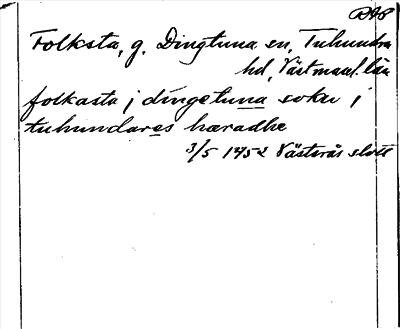 Folksta, g. Dingtuna sn, Tuhundra
hd, Västmanl. län
folkasta j dingetuna sokn i
tuhundares hæradhe
3/5 1452 Västerås slott